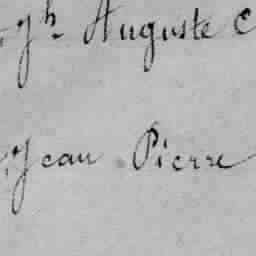 Jh Auguste C
Jean Pierre